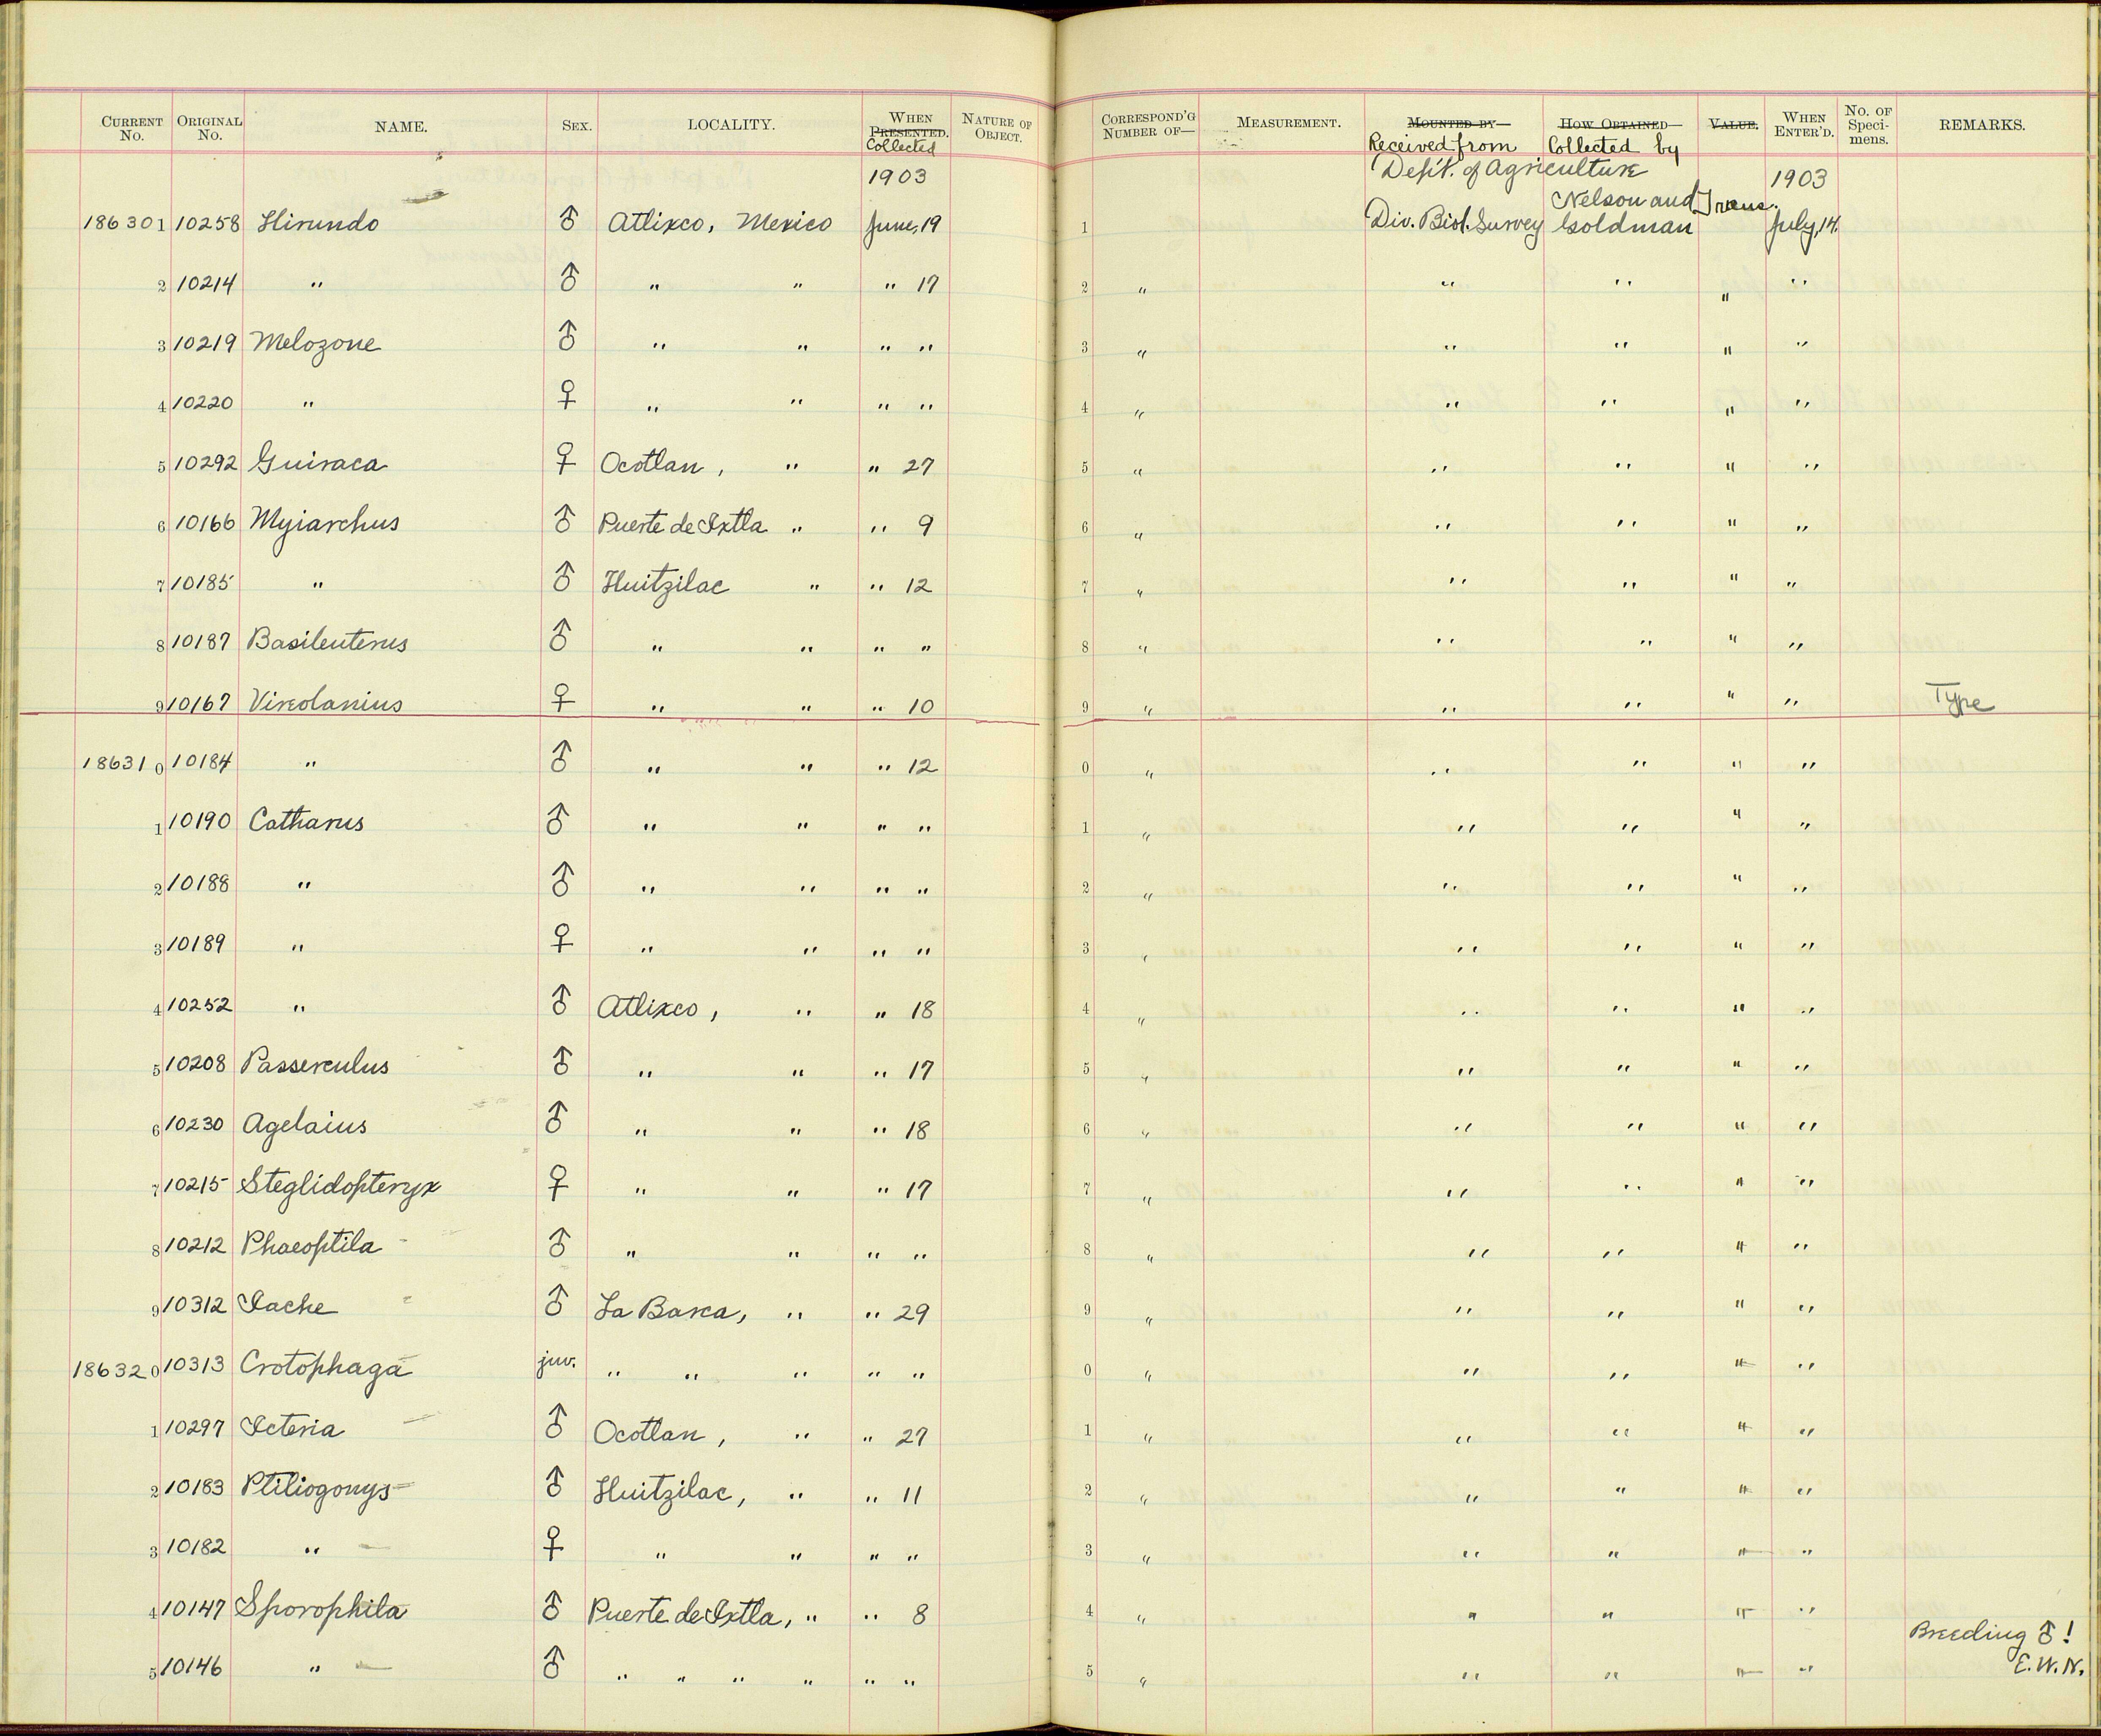 CURRENT No. ORIGINAL No. NAME. SEX. LOCALITY. WHEN PRESENTED. Collected NATURE OF OBJECT. CORRESPOND'G NUMBER OF— MEASUREMENT. MOUNTED BY— Received from HOW OBTAINED— Collected by VALUE. WHEN ENTER'D. No. OF Speci-mens. REMARKS.
1903 Dep't. of Agriculture 1903
186301 10258 Hirundo ♂ Atlixco, Mexico June, 19 1 Div. Biol. Survey Nelson and Goldman Trans. July, 14.
2 10214 " ♂ " " " 17 2 " " " " "
3 10219 Melozone ♂ " " " " 3 " " " " "
4 10220 " ♀ " " " " 4 " " " " "
5 10292 Guiraca ♀ Ocotlan, " " 27 5 " " " " "
6 10166 Myiarchus ♂ Puerte de Ixtla " " 9 6 " " " " "
7 10185 " ♂ Huitzilac " " 12 7 " " " " "
8 10187 Basileuterus ♂ " " " " 8 " " " " "
9 10167 Vireolanius ♀ " " " 10 9 " " " " " Type
186310 10184 " ♂ " " " 12 0 " " " " "
1 10190 Catharus ♂ " " " " 1 " " " " "
2 10188 " ♂ " " " " 2 " " " " "
3 10189 " ♀ " " " " 3 " " " " "
4 10252 " ♂ Atlixco, " " 18 4 " " " " "
5 10208 Passerculus ♂ " " " 17 5 " " " " "
6 10230 Agelaius ♂ " " " 18 6 " " " " "
7 10215 Steglidopteryx ♀ " " " 17 7 " " " " "
8 10212 Phaeoptila ♂ " " " " 8 " " " " "
9 10312 Iache ♂ La Barca, " " 29 9 " " " " "
186320 10313 Crotophaga juv. " " " " " 0 " " " " "
1 10297 Icteria ♂ Ocotlan, " " 27 1 " " " " "
2 10183 Ptiliogonys ♂ Huitzilac, " " 11 2 " " " " "
3 10182 " ♀ " " " " 3 " " " " "
4 10147 Sporophila ♂ Puerte de Ixtla, " " 8 4 " " " " "
5 10146 " ♂ " " " " " " 5 " " " " " Breeding ♂! E.W.N.